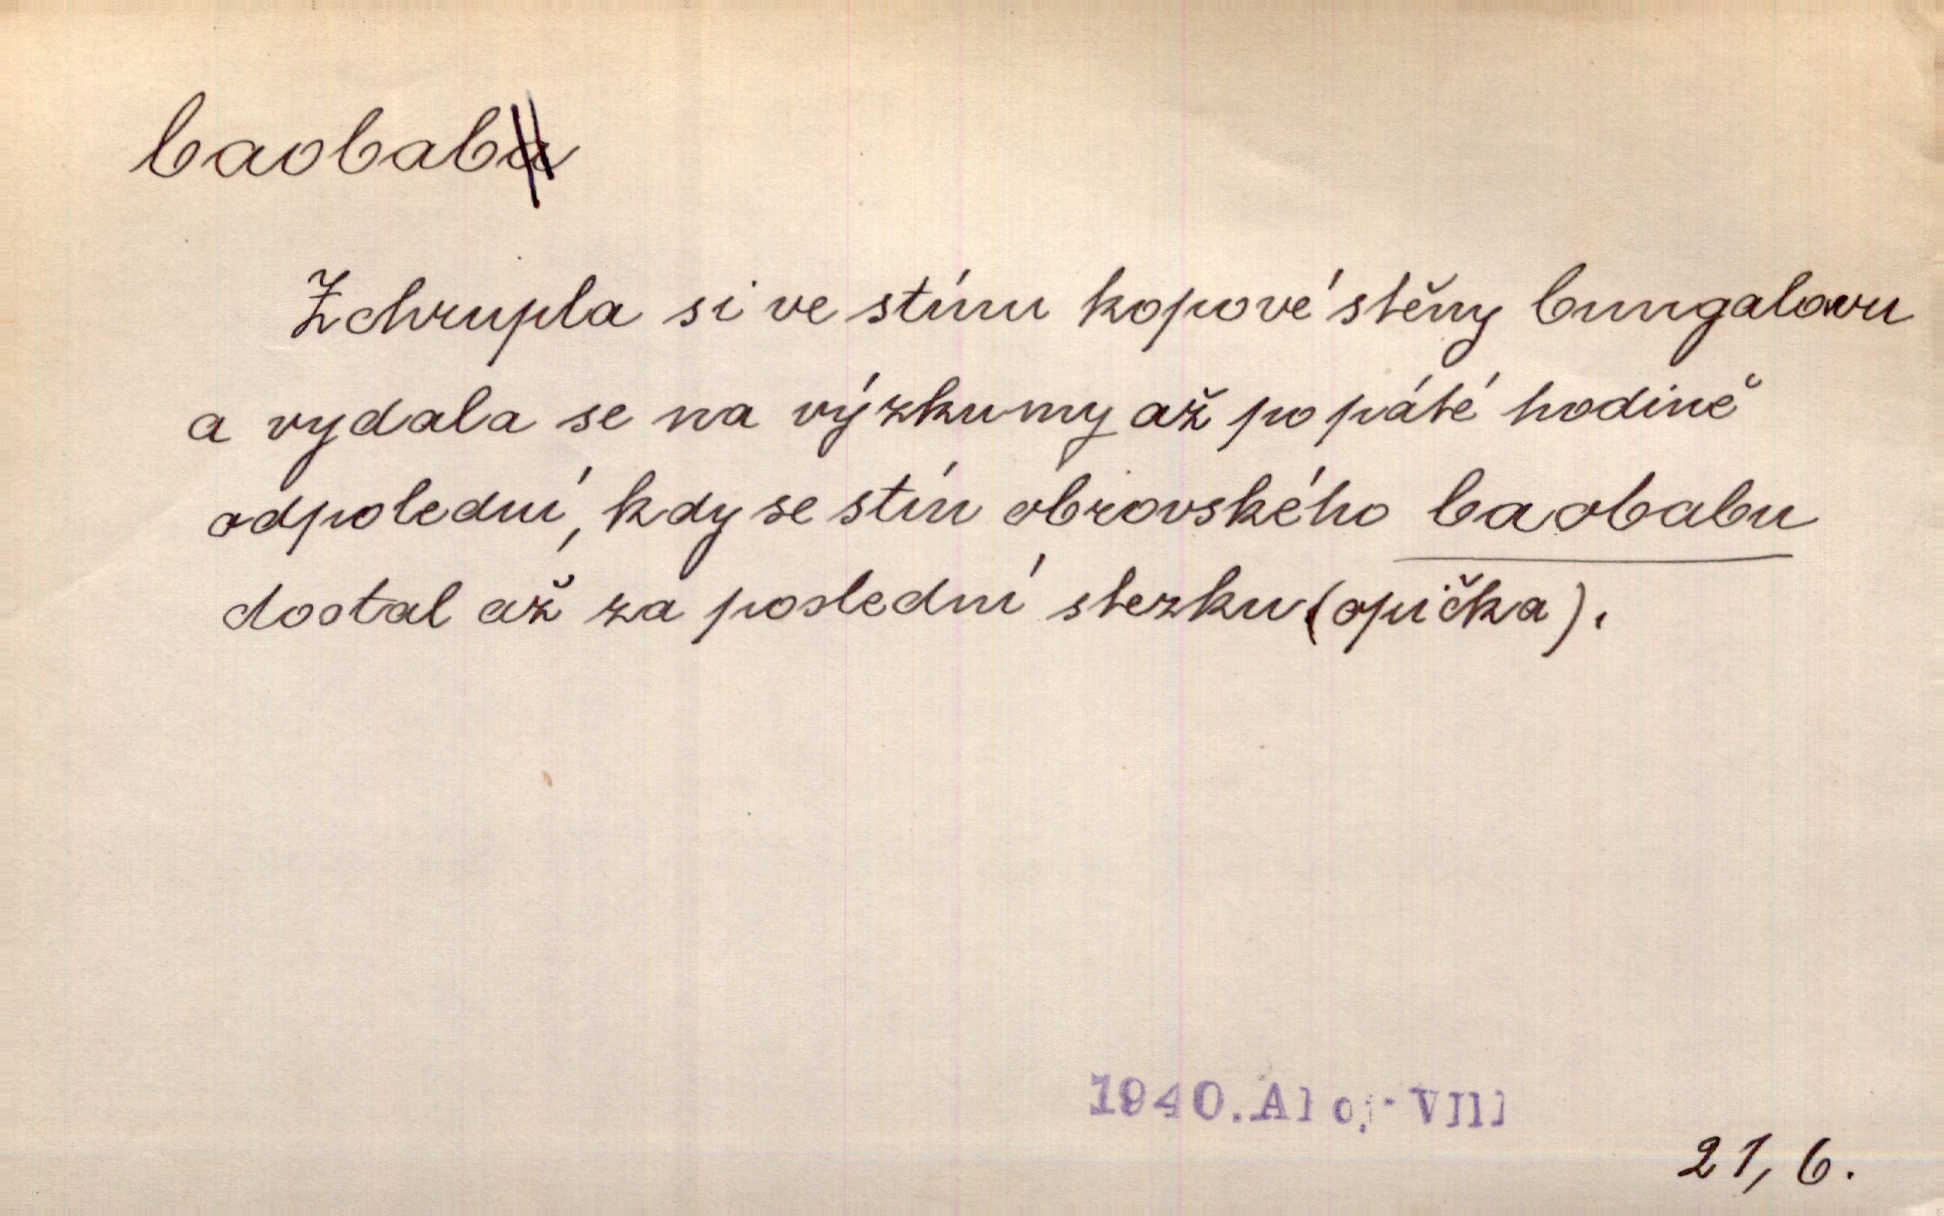 baobab
Zchrupla si ve stínu kopové stěny bungalovu
a vydala se na výzkumy až po páté hodině
odpolední, kdy se stín obrovského baobabu
dostal až za poslední stezku (opička).
1940. Aloj. VIII
21, 6.